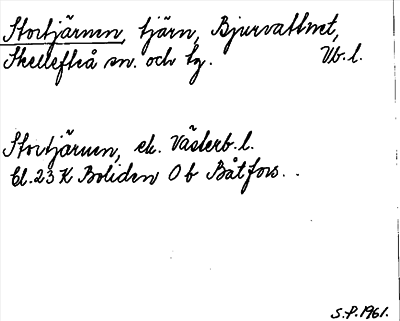 Stortjärnen, tjärn, Bjurvattnet,
Skellefteå sn. och tg. Vb. l.
Stortjärnen, ek. Västerb. l.
bl. 23 K Boliden O b Båtfors.
S.P. 1961.